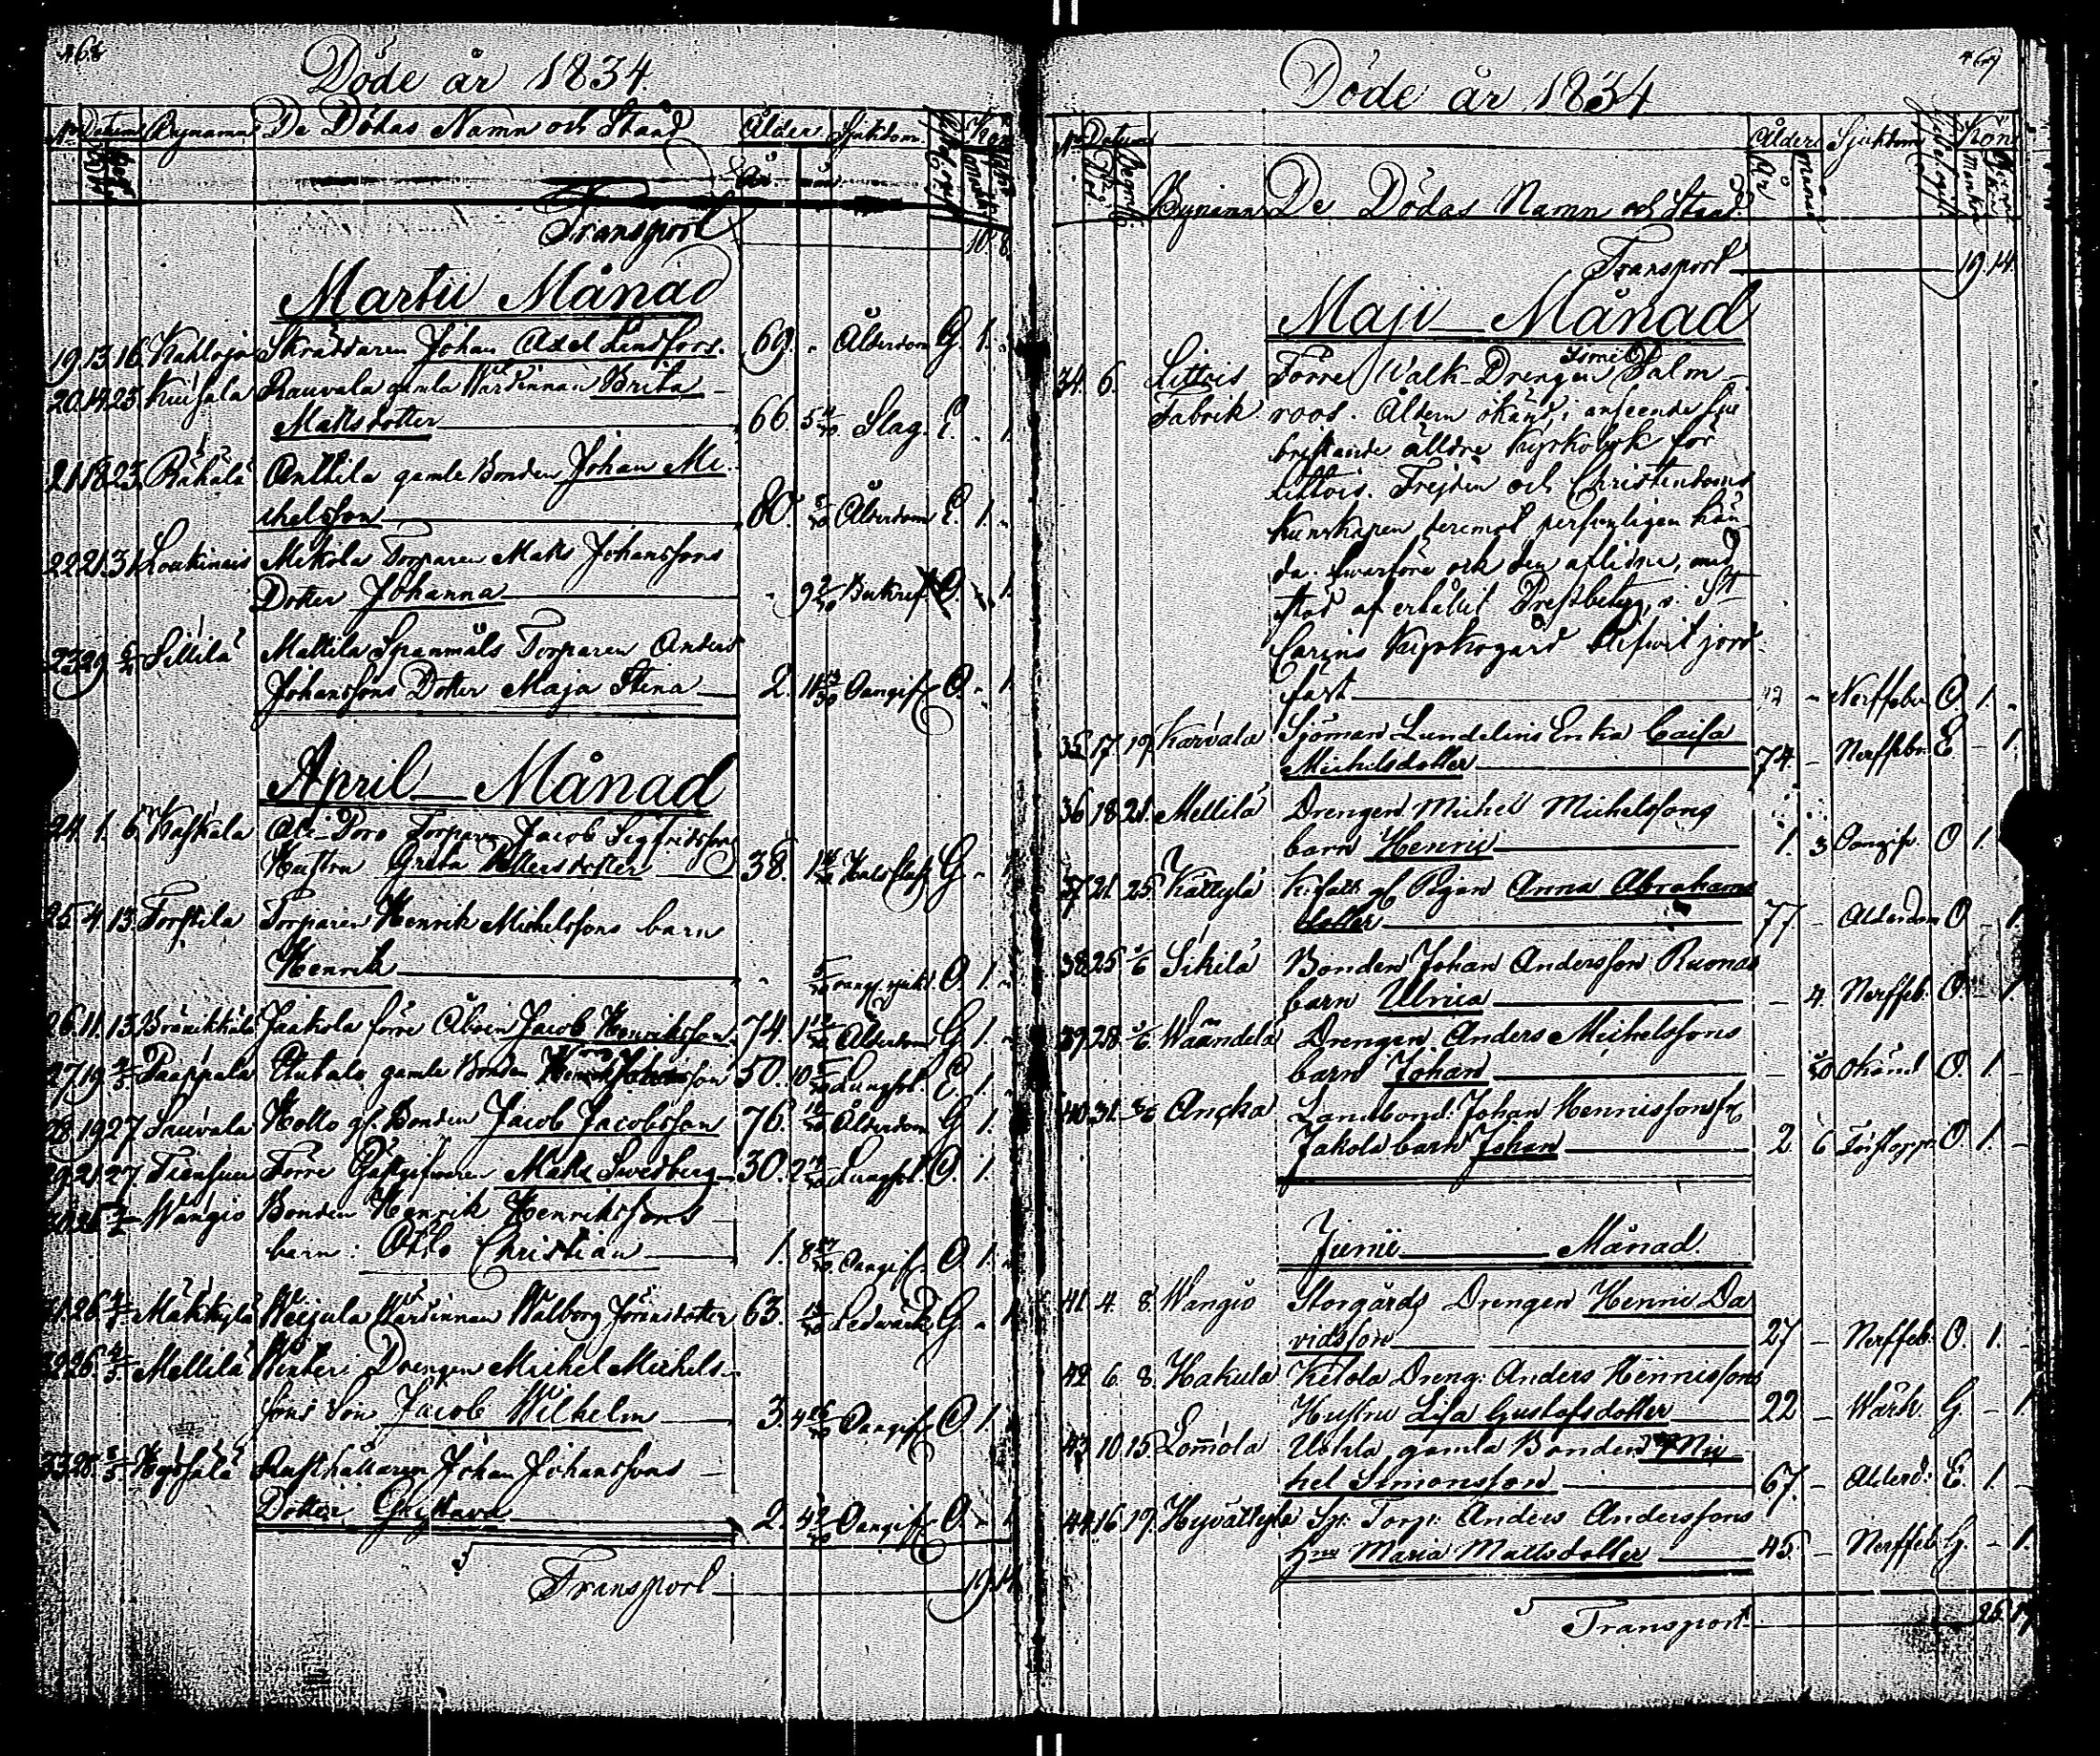 468
Döde år 1834.
No Datum Bynamn De Dödas Namn och Stånd Ålder Sjukdom Kön
År
Transport 10. 8.
Martii Månad
19. 13. 16. Skräddaren Johan Axel Lindfors. 69. - Ålderdom G. 1. -
20. 14. 23. Rauvala gamla Wärdinnan Brita
Matsdotter 66. 5 Slag. E. - 1.
21. 18. 23. Anttila gamle Bonden Johan Mi-
chelsson 80. Ålderdom E. 1. -
22. 21. 31. Loukinais Mikola Torparen Mats Johanssons
Dotter Johanna - 9 O. - 1.
23. 29. Sillilä Mattila Spanmåls Torparen Anders
Johanssons Dotter Maja Stina 2. 11 Oangif. O. - 1.
April Månad
24. 1. 6. Kaskala Ali-Poro Torparen Jacob Sigfridssons
Hustru Greta 38. 1 G. - 1
25. 4. 13. Torstila Torparen Henrik Michelssons barn
Henrik - O. 1. -
26. 11. 13. Jaakola förre Åboen Jacob Henriksson 74. 1 Ålderdom G. 1. -
27. 19. Paappala gamle Bonden 50. 10 Lungsot. E. 1.
28. 19. 27. Sauvala Kollo gl. Bonden Jacob Jacobsson 76. Ålderdom G. 1.
29. 21. 27. Förre Gästgifwaren Mats Swedberg 30. 2 Lungsot. O. 1.
Wångio Bonden Henrik Henrikssons
barn: Otto Christian 1. 8 Oangif. O. 1.
31. 26. Mäkkylä Weijula Wärdinnan Walborg Jöransdotter 63. Ledwärk G. - 1
32. 26. Mellilä Drengen Michel Michels-
sons Son Jacob Wilhelm 3. 4 Oangif. O. 1.
33. 28. Rusthållaren Johan Johanssons
Dotter Gustava 2. 4 Oangif. O. - 1.
Transport 19. 14
469
Döde år 1834
No Datum Bynamn De Dödas Namn och Stånd. Ålder Sjukdom Kön
År Månad
Transport 19. 14.
Maji Månad
34. 6. Littois Förre Walk-Drengen Palm-
Fabrik roos. Åldern okänd, i anseende till
bristande älldre kyrkobok för
Littois. Frejden och Christendoms
kunskapen deremot personligen kän-
da. hwarföre och den aflidne, med
stöd af erhållit Prestbetyg, i St
Carins Kyrkogård blifwit jord-
fäst - Nerffeber O. 1. -
35. 17. 19. Karvala Sjöman Lundelins Enka Caisa
Michelsdotter 74. - Nerffeber E. - 1.
36 18 21. Mellilä Drengen Michel Michelssons
barn Henric 1. 3 Oangif. O 1.
37 21. 25. Kättylä Anna Abrahams
dotter 77. - Ålderdom O. 1.
38. 25 Sikilä Bonden Johan Andersson Ruonas
barn Ulrica - 4 Nerffeb. O. - 1
39. 28. Wäändelä Drengen Anders Michelssons
barn Johan - Okänd O. 1.
40. 31. Ancka Landbond. Johan Henricssons
Jakola barn Johan 2 6 O 1. -
Junii Månad.
41. 4. 8. Wångio Storgårds Drengen Henric Da-
vidsson 27 - Nerffeb. O. 1. -
42. 6. 8. Hakula Ketola Dreng: Anders Henricssons
Hustru Lisa Gustafsdotter 22 - Wärk. G - 1.
43 10. 15. Lommola Uotila gamla Bonden Mi-
chel Simonsson 67. - Ålderd: E. 1. -
44. 16. 19. Hyvättylä Sp. Torp: Anders Anderssons
Hu Maria Mattsdotter 45. - Nerffeb G. - 1.
Transport 25. 19